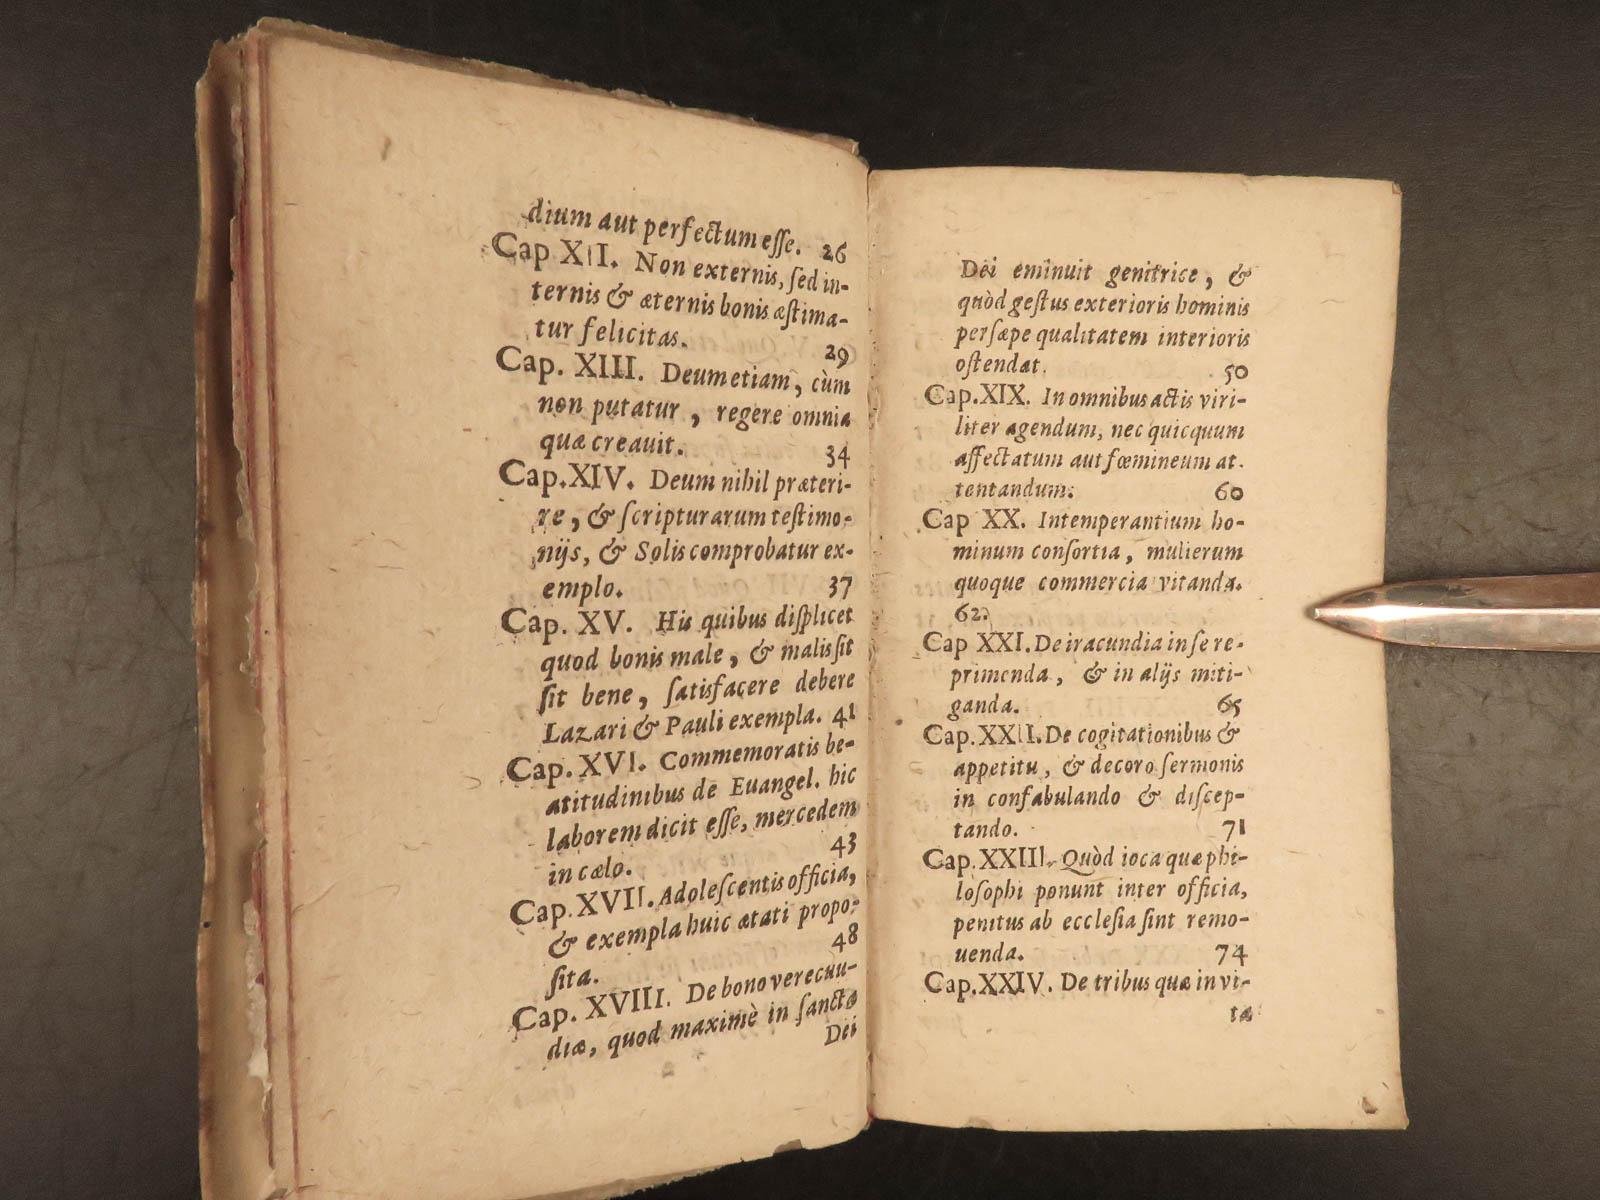 dium aut perfectum esse. 26
Cap XII. Non externis, sed in-
ternis & æternis bonis æstima-
tur felicitas. 29
Cap. XIII. Deum etiam, cùm
non putatur, regere omnia
quæ creauit. 34
Cap. XIV. Deum nihil præteri-
re, & scripturarum testimo-
nijs, & Solis comprobatur ex-
emplo. 37
Cap. XV. His quibus displicet
quod bonis male, & malis sit
sit bene, satisfacere debere
Lazari & Pauli exempla. 41
Cap. XVI. Commemoratis be-
atitudinibus de Euangel. hic
laborem dicit esse, mercedem
in cælo. 43
Cap. XVII. Adolescentis officia,
& exempla huic ætati propo-
sita. 48
Cap. XVIII. De bono verecuu-
diæ, quod maximè in sancta
Dei
Dei eminuit genitrice, &
quòd gestus exterioris hominis
persæpe qualitatem interioris
ostendat. 50
Cap. XIX. In omnibus actis viri-
liter agendum, nec quicquum
affectatum aut fœmineum at.
tentandum. 60
Cap XX. Intemperantium ho-
minum consortia, mulierum
quoque commercia vitanda.
62.
Cap XXI. De iracundia in se re-
primenda, & in alijs miti-
ganda. 65
Cap. XXII. De cogitationibus &
appetitu, & decoro sermonis
in confabulando & discep-
tando. 71
Cap. XXIII. Quòd ioca quæ phi-
losophi ponunt inter officia,
penitus ab ecclesia sint remo-
uenda. 74
Cap. XXIV. De tribus quæ in vi-
ta